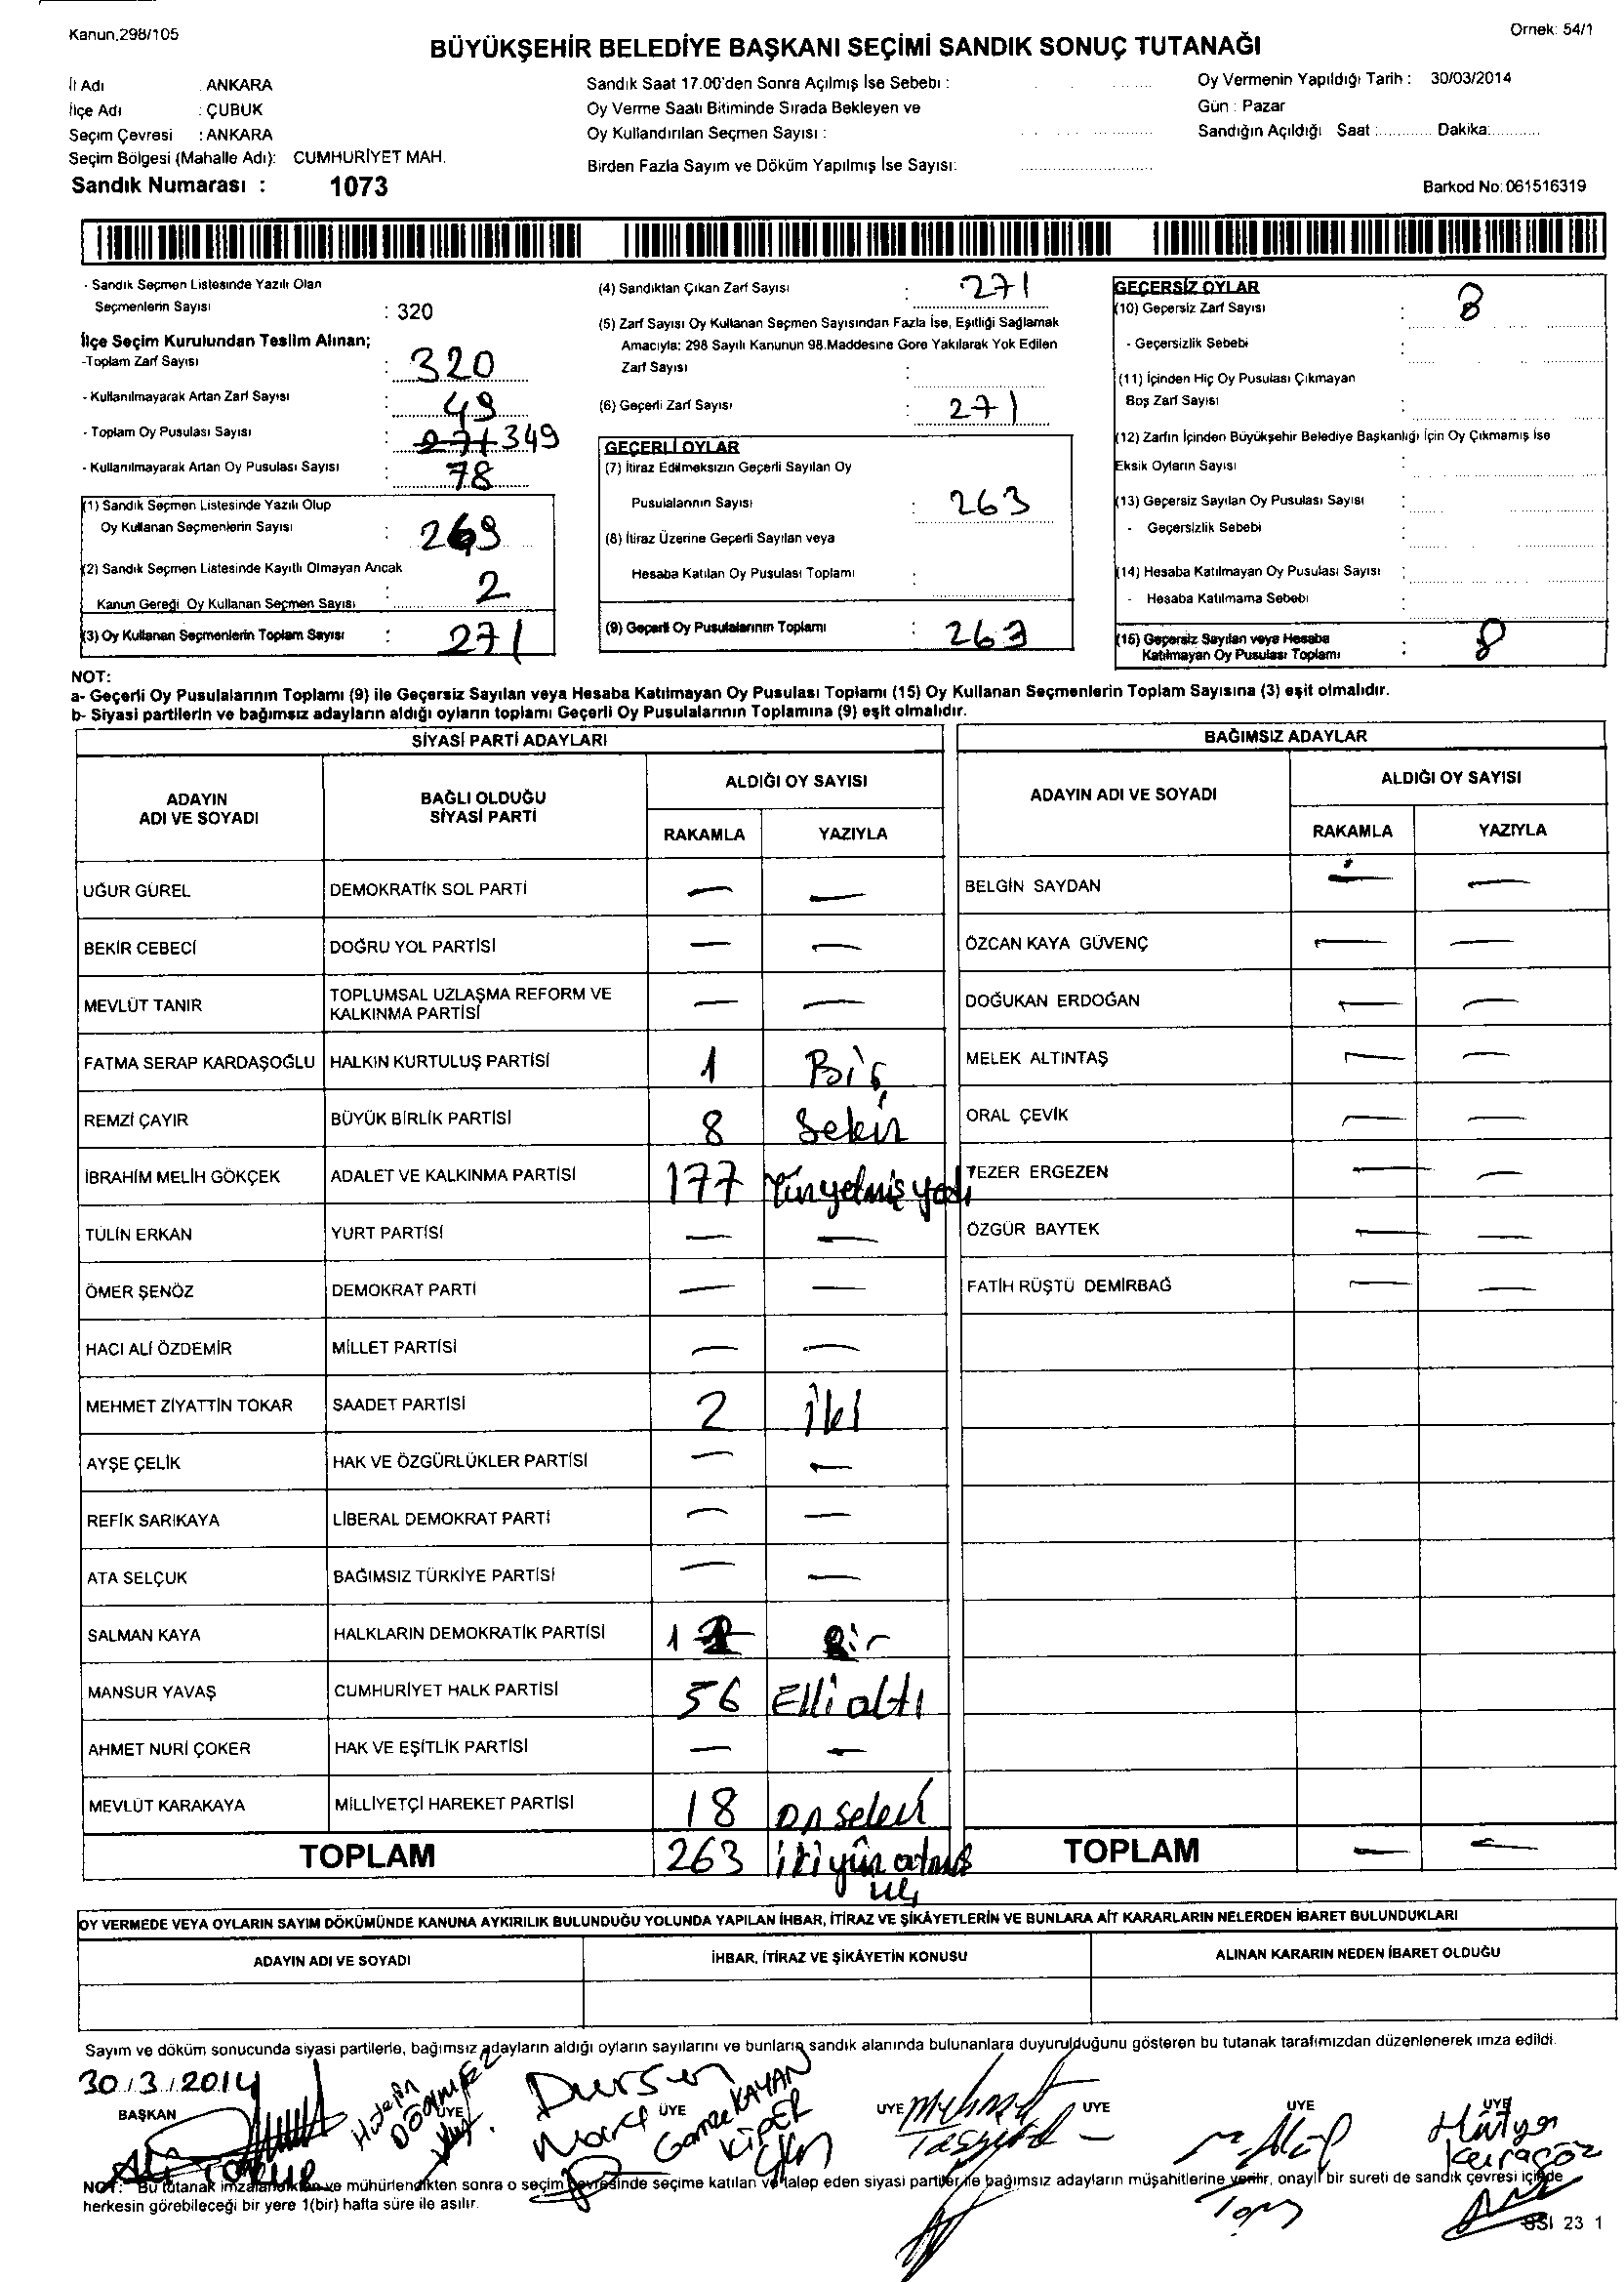 Kanun.298/105
Ornek: 54/1
BÜYÜKŞEHİR BELEDİYE BAŞKANI SEÇİMİ SANDIK SONUÇ TUTANAĞI
İl Adı : ANKARA
İlçe Adı : ÇUBUK
Seçim Çevresi : ANKARA
Seçim Bölgesi (Mahalle Adı): CUMHURİYET MAH.
Sandık Numarası : 1073
Sandık Saat 17.00'den Sonra Açılmış İse Sebebi :
Oy Verme Saati Bitiminde Sırada Bekleyen ve
Oy Kullandırılan Seçmen Sayısı :
Birden Fazla Sayım ve Döküm Yapılmış İse Sayısı:
Oy Vermenin Yapıldığı Tarih : 30/03/2014
Gün : Pazar
Sandığın Açıldığı Saat :............ Dakika:............
Barkod No: 061516319
- Sandık Seçmen Listesinde Yazılı Olan
Seçmenlerin Sayısı : 320
İlçe Seçim Kurulundan Teslim Alınan;
-Toplam Zarf Sayısı : 320
- Kullanılmayarak Artan Zarf Sayısı : 49
- Toplam Oy Pusulası Sayısı : 271 349
- Kullanılmayarak Artan Oy Pusulası Sayısı : 78
(1) Sandık Seçmen Listesinde Yazılı Olup
Oy Kullanan Seçmenlerin Sayısı : 269
(2) Sandık Seçmen Listesinde Kayıtlı Olmayan Ancak
Kanun Gereği Oy Kullanan Seçmen Sayısı : 2
(3) Oy Kullanan Seçmenlerin Toplam Sayısı : 271
(4) Sandıktan Çıkan Zarf Sayısı : 271
(5) Zarf Sayısı Oy Kullanan Seçmen Sayısından Fazla İse, Eşitliği Sağlamak
Amacıyla: 298 Sayılı Kanunun 98.Maddesine Gore Yakılarak Yok Edilen
Zarf Sayısı :
(6) Geçerli Zarf Sayısı : 271
GEÇERLİ OYLAR
(7) İtiraz Edilmeksizin Geçerli Sayılan Oy
Pusulalarının Sayısı : 263
(8) İtiraz Üzerine Geçerli Sayılan veya
Hesaba Katılan Oy Pusulası Toplamı :
(9) Geçerli Oy Pusulalarının Toplamı : 263
GEÇERSİZ OYLAR
(10) Geçersiz Zarf Sayısı : 8
- Geçersizlik Sebebi :
(11) İçinden Hiç Oy Pusulası Çıkmayan
Boş Zarf Sayısı :
(12) Zarfın İçinden Büyükşehir Belediye Başkanlığı İçin Oy Çıkmamış İse
Eksik Oyların Sayısı :
(13) Geçersiz Sayılan Oy Pusulası Sayısı :
- Geçersizlik Sebebi :
(14) Hesaba Katılmayan Oy Pusulası Sayısı :
- Hesaba Katılmama Sebebi :
(15) Geçersiz Sayılan veya Hesaba
Katılmayan Oy Pusulası Toplamı : 8
NOT:
a- Geçerli Oy Pusulalarının Toplamı (9) ile Geçersiz Sayılan veya Hesaba Katılmayan Oy Pusulası Toplamı (15) Oy Kullanan Seçmenlerin Toplam Sayısına (3) eşit olmalıdır.
b- Siyasi partilerin ve bağımsız adayların aldığı oyların toplamı Geçerli Oy Pusulalarının Toplamına (9) eşit olmalıdır.
SİYASİ PARTİ ADAYLARI
ADAYIN ADI VE SOYADI
BAĞLI OLDUĞU SİYASİ PARTİ
ALDIĞI OY SAYISI
RAKAMLA YAZIYLA
UĞUR GÜREL DEMOKRATİK SOL PARTİ — —
BEKİR CEBECİ DOĞRU YOL PARTİSİ — —
MEVLÜT TANIR TOPLUMSAL UZLAŞMA REFORM VE KALKINMA PARTİSİ — —
FATMA SERAP KARDAŞOĞLU HALKIN KURTULUŞ PARTİSİ 1 Bir
REMZİ ÇAYIR BÜYÜK BİRLİK PARTİSİ 8 Sekiz
İBRAHİM MELİH GÖKÇEK ADALET VE KALKINMA PARTİSİ 177 Yüzyetmiş yedi
TÜLİN ERKAN YURT PARTİSİ — —
ÖMER ŞENÖZ DEMOKRAT PARTİ — —
HACI ALİ ÖZDEMİR MİLLET PARTİSİ — —
MEHMET ZİYATTİN TOKAR SAADET PARTİSİ 2 İki
AYŞE ÇELİK HAK VE ÖZGÜRLÜKLER PARTİSİ — —
REFİK SARIKAYA LİBERAL DEMOKRAT PARTİ — —
ATA SELÇUK BAĞIMSIZ TÜRKİYE PARTİSİ — —
SALMAN KAYA HALKLARIN DEMOKRATİK PARTİSİ 1 Bir
MANSUR YAVAŞ CUMHURİYET HALK PARTİSİ 56 Elli altı
AHMET NURİ ÇOKER HAK VE EŞİTLİK PARTİSİ — —
MEVLÜT KARAKAYA MİLLİYETÇİ HAREKET PARTİSİ 18 On sekiz
TOPLAM 263 ikiyüz atmış üç
BAĞIMSIZ ADAYLAR
ADAYIN ADI VE SOYADI
ALDIĞI OY SAYISI
RAKAMLA YAZIYLA
BELGİN SAYDAN — —
ÖZCAN KAYA GÜVENÇ — —
DOĞUKAN ERDOĞAN — —
MELEK ALTINTAŞ — —
ORAL ÇEVİK — —
TEZER ERGEZEN — —
ÖZGÜR BAYTEK — —
FATİH RÜŞTÜ DEMİRBAĞ — —
TOPLAM — —
OY VERMEDE VEYA OYLARIN SAYIM DÖKÜMÜNDE KANUNA AYKIRILIK BULUNDUĞU YOLUNDA YAPILAN İHBAR, İTİRAZ VE ŞİKÂYETLERİN VE BUNLARA AİT KARARLARIN NELERDEN İBARET BULUNDUKLARI
ADAYIN ADI VE SOYADI İHBAR, İTİRAZ VE ŞİKÂYETİN KONUSU ALINAN KARARIN NEDEN İBARET OLDUĞU
Sayım ve döküm sonucunda siyasi partilerle, bağımsız adayların aldığı oyların sayılarını ve bunların sandık alanında bulunanlara duyurulduğunu gösteren bu tutanak tarafımızdan düzenlenerek imza edildi.
30/3/2014
BAŞKAN ÜYE ÜYE ÜYE ÜYE ÜYE ÜYE
Hüseyin DÖĞNMEZ
Dursun
Gamze KAYAN KİPER
Mehmet
NOT: Bu tutanak imzalandıktan ve mühürlendikten sonra o seçim çevresinde seçime katılan ve talep eden siyasi partiler ile bağımsız adayların müşahitlerine verilir, onaylı bir sureti de sandık çevresi içinde
herkesin görebileceği bir yere 1(bir) hafta süre ile asılır.
SSI 23 1